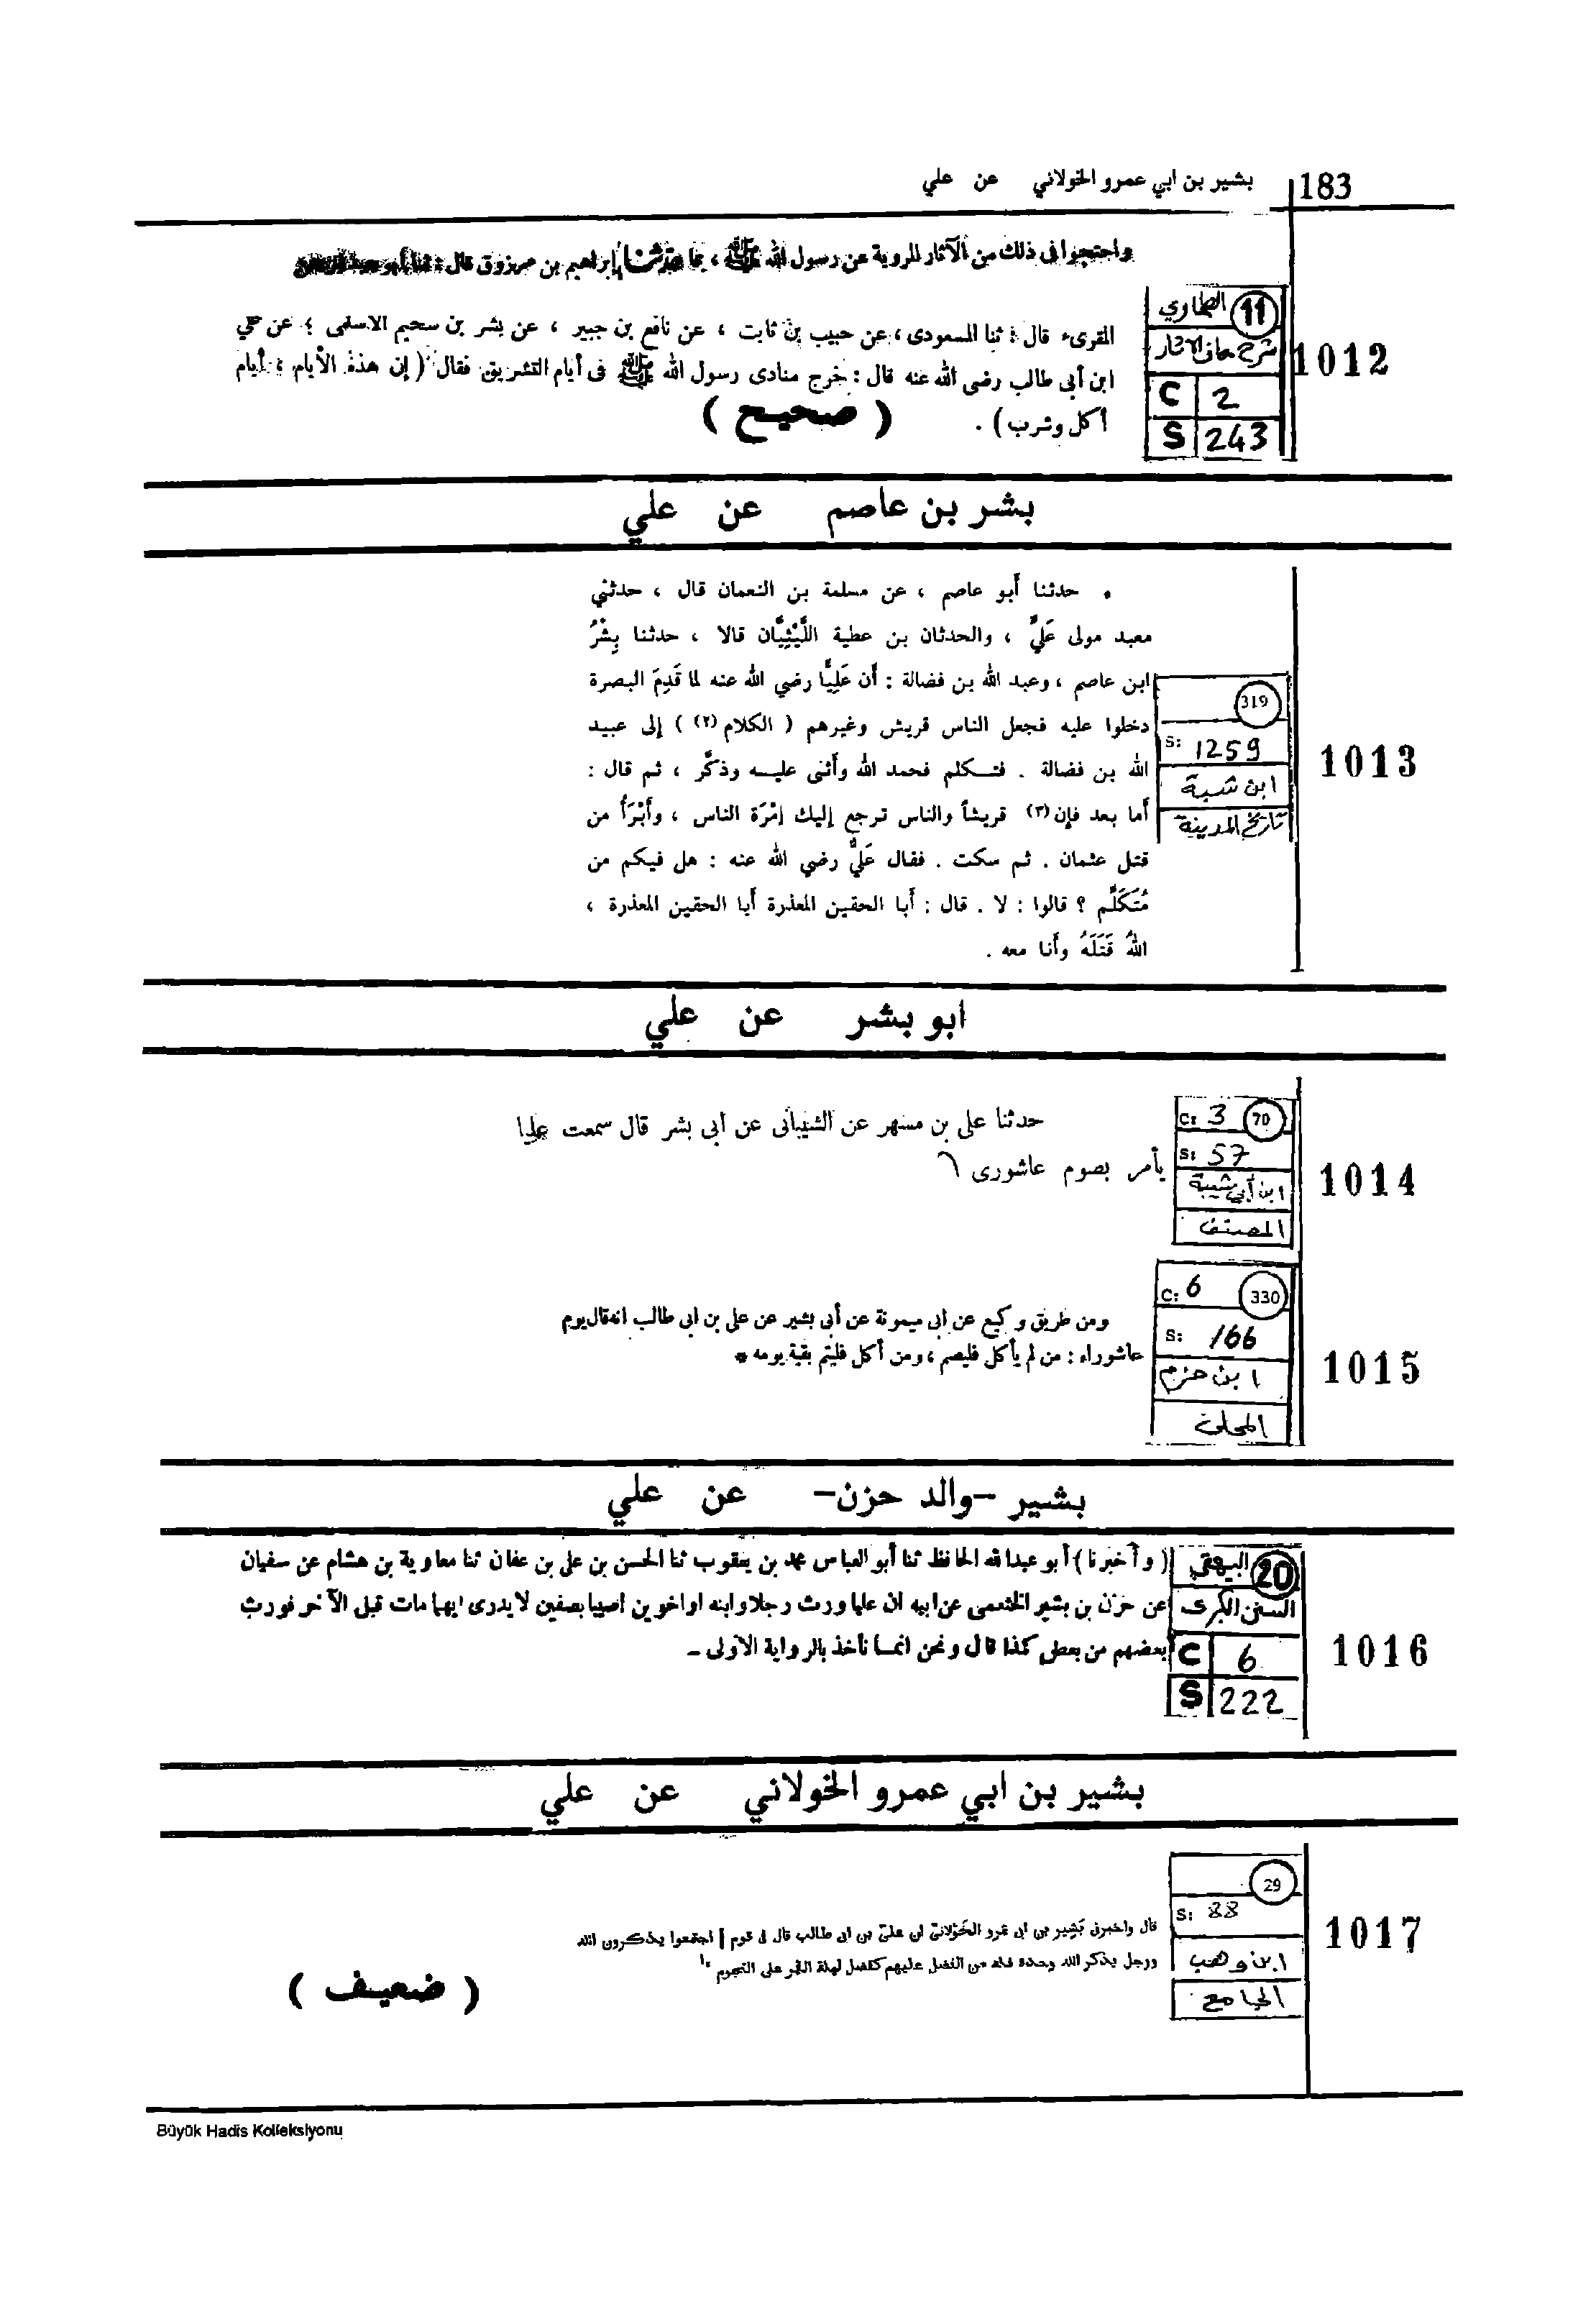 183 بشير بن ابي عمرو الخولاني عن علي
واحتجوا فى ذلك من الآثار المروية عن رسول الله ﷺ ، بما حدثنا إبراهيم بن مرزوق قال : ثنا أبو
المقرىء قال : ثنا المسعودى ، عن حبيب بن ثابت ، عن نافع بن جبير ، عن بشر بن سحيم الاسلمى ، عن علي
ابن أبى طالب رضى الله عنه قال : خرج منادى رسول الله ﷺ فى أيام التشريق فقال ( إن هذه الأيام ، أيام
أكل وشرب ) . ( صحيح )
11 الطحاوي
شرح معاني الآثار
C 2
S 243
1012
بشر بن عاصم عن علي
• حدثنا أبو عاصم ، عن مسلمة بن النعمان قال ، حدثني
معبد مولى عَلِيٍّ ، والحدثان بن عطية اللَّيْثِيَّان قالا ، حدثنا بِشْرُ
ابن عاصم ، وعبد الله بن فضالة : أن عَلِيًّا رضي الله عنه لما قَدِمَ البصرة
دخلوا عليه فجعل الناس قريش وغيرهم ( الكلام (٢) ) إلى عبيد
الله بن فضالة . فتـكلم فحمد الله وأثنى عليـه وذكَّر ، ثم قال :
أما بعد فإن (٣) قريشاً والناس ترجع إليك إمْرَة الناس ، وأَبْرَأُ من
قتل عثمان . ثم سكت . فقال عَلِيٌّ رضي الله عنه : هل فيكم من
مُتَكَلِّم ؟ قالوا : لا . قال : أبا الحقين المعذرة أبا الحقين المعذرة ،
اللهُ قَتَلَهُ وأنا معه .
319
S: 1259
ابن شبة
تاريخ المدينة
1013
ابو بشر عن علي
حدثنا على بن مسهر عن الشيبانى عن أبى بشر قال سمعت عليا
يأمر بصوم عاشورى
C: 3 70
S: 57
ابن أبي شيبة
المصنف
1014
ومن طريق وكيع عن ابى ميمونة عن أبى بشير عن على بن ابى طالب انه قال يوم
عاشوراء : من لم يأكل فليصم ، ومن أكل فليتم بقية يومه *
C: 6 330
S: 166
ابن حزم
المحلى
1015
بشير -والد حزن- عن علي
( وأخبرنا ) أبو عبد الله الحافظ ثنا أبو العباس محمد بن يعقوب ثنا الحسن بن على بن عفان ثنا معاوية بن هشام عن سفيان
عن حزن بن بشير الخثعمى عن ابيه ان عليا ورث رجلا وابنه او اخوين اصيبا بصفين لا يدرى ايهما مات قبل الآخر فورث
بعضهم من بعض كذا قال ونحن انمـا نأخذ بالرواية الاولى -
20 البيهقي
السنن الكبرى
C 6
S 222
1016
بشير بن ابي عمرو الخولاني عن علي
قال واخبرنى بَشِير بن ابى عمرو الخَوْلانىّ ان علىّ بن ابى طالب قال فى قوم اجتمعوا يذكرون الله
ورجل يذكر الله وحده فله من الفضل عليهم كفضل ليلة القمر على النجوم
( ضعيف )
29
S: 88
ابن وهب
الجامع
1017
Büyük Hadis Kolleksiyonu